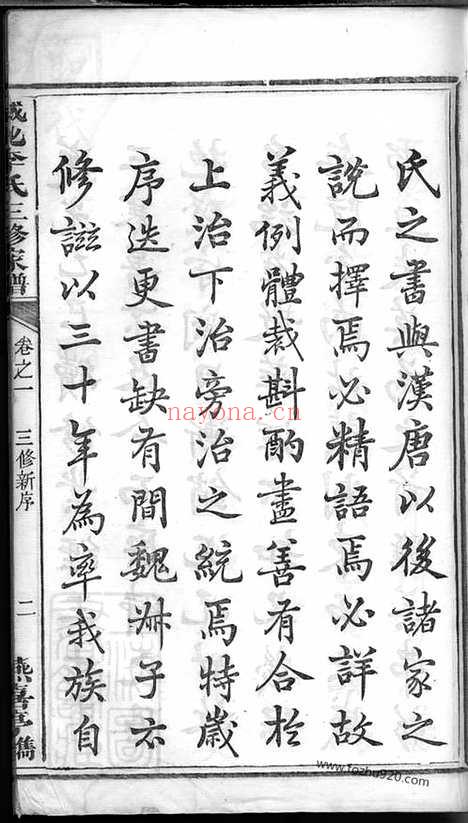 氏之書與漢唐以後諸家之
說而擇焉必精語焉必詳故
義例體裁斟酌盡善有合於
上治下治旁治之統焉特歲
序迭更書缺有間魏料子亦
修譜以三十年為率我族自
氏三修家譜
卷之一
三修新序
二
nayona.cn
www.fozhu920.com